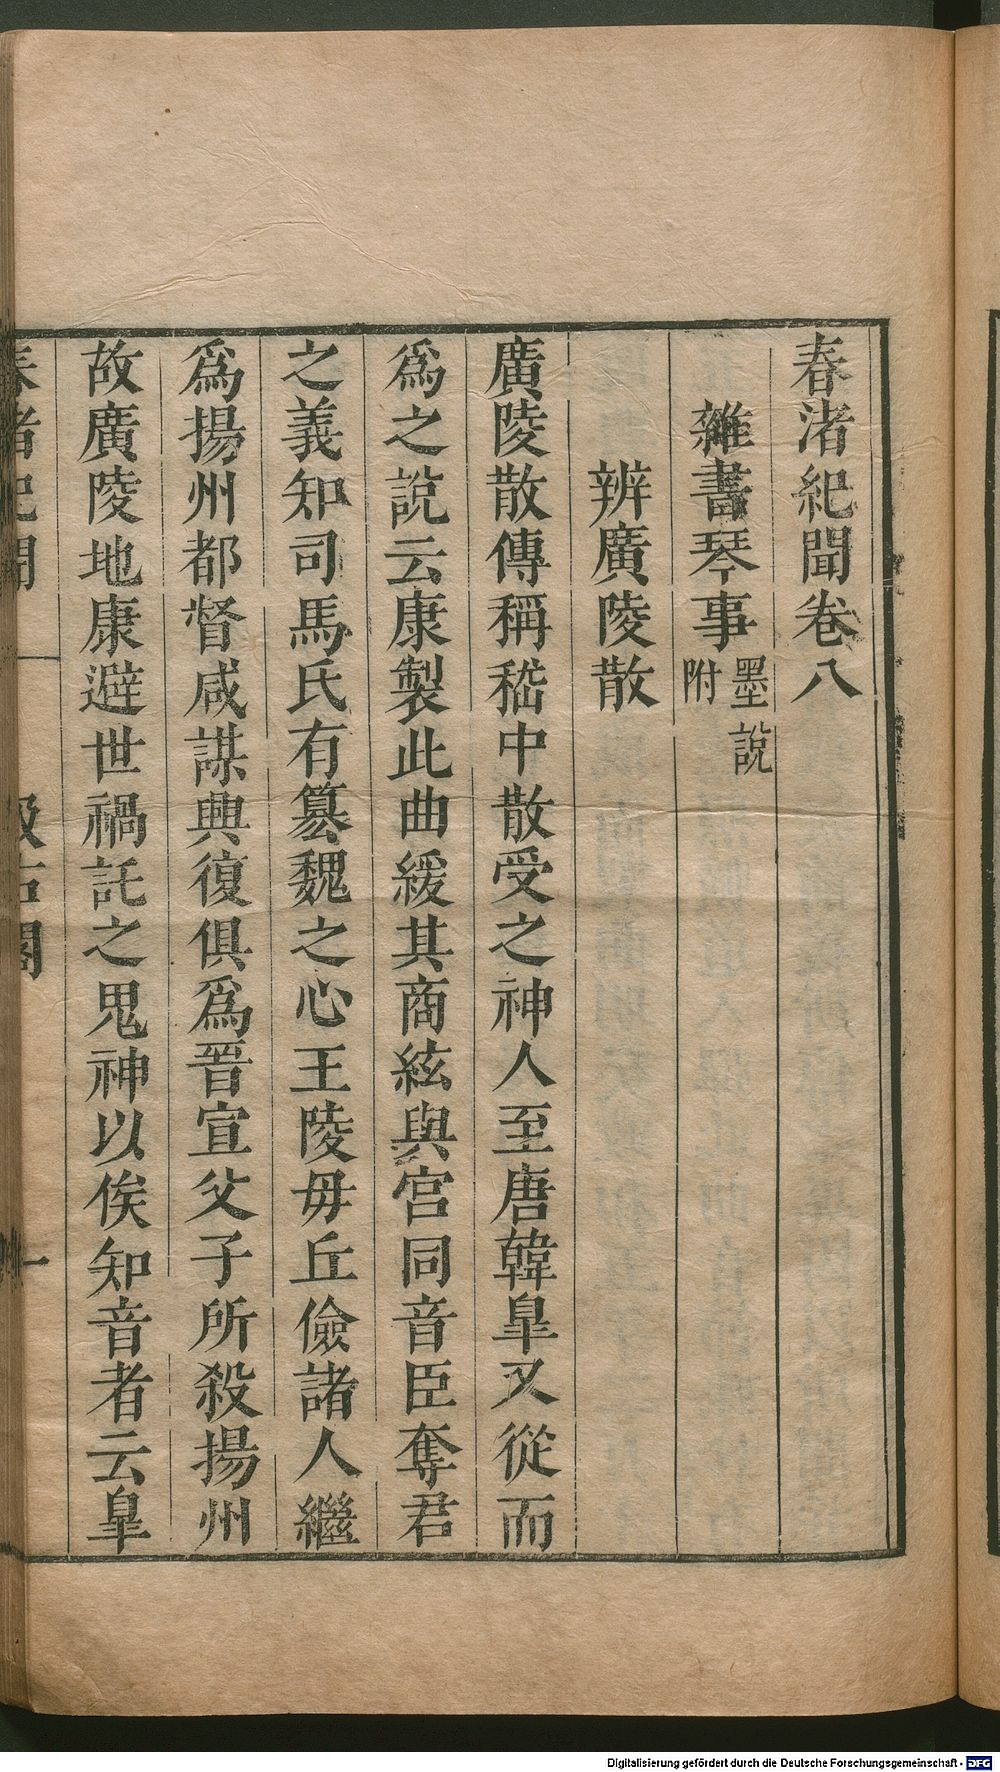 春渚紀聞卷八
雜書琴事墨說附
辨廣陵散
廣陵散傳稱嵇中散受之神人至唐韓臯又從而
爲之說云康製此曲緩其商絃與宮同音臣奪君
之義知司馬氏有篡魏之心王陵毋丘儉諸人繼
爲揚州都督咸謀興復俱爲晉宣父子所殺揚州
故廣陵地康避世禍託之鬼神以俟知音者云臯
春渚紀聞
汲古閣
一
Digitalisierung gefördert durch die Deutsche Forschungsgemeinschaft - DFG